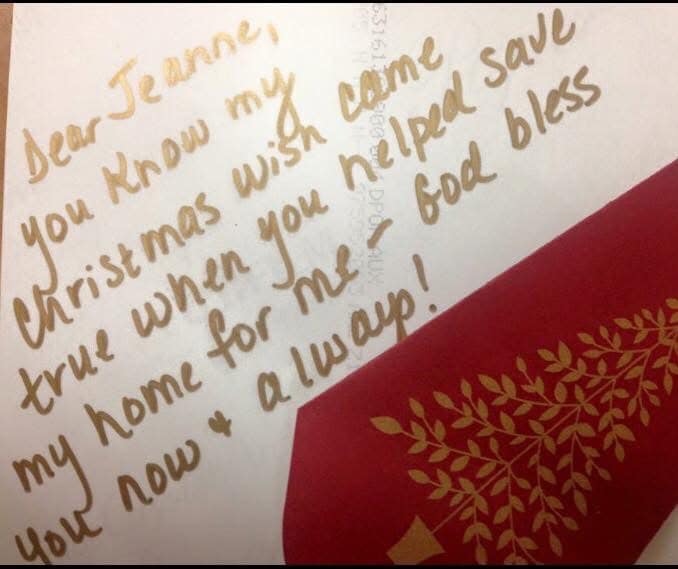 Dear Jeanne,
you know my
Christmas wish came
true when you helped save
my home for me - God bless
you now & always!